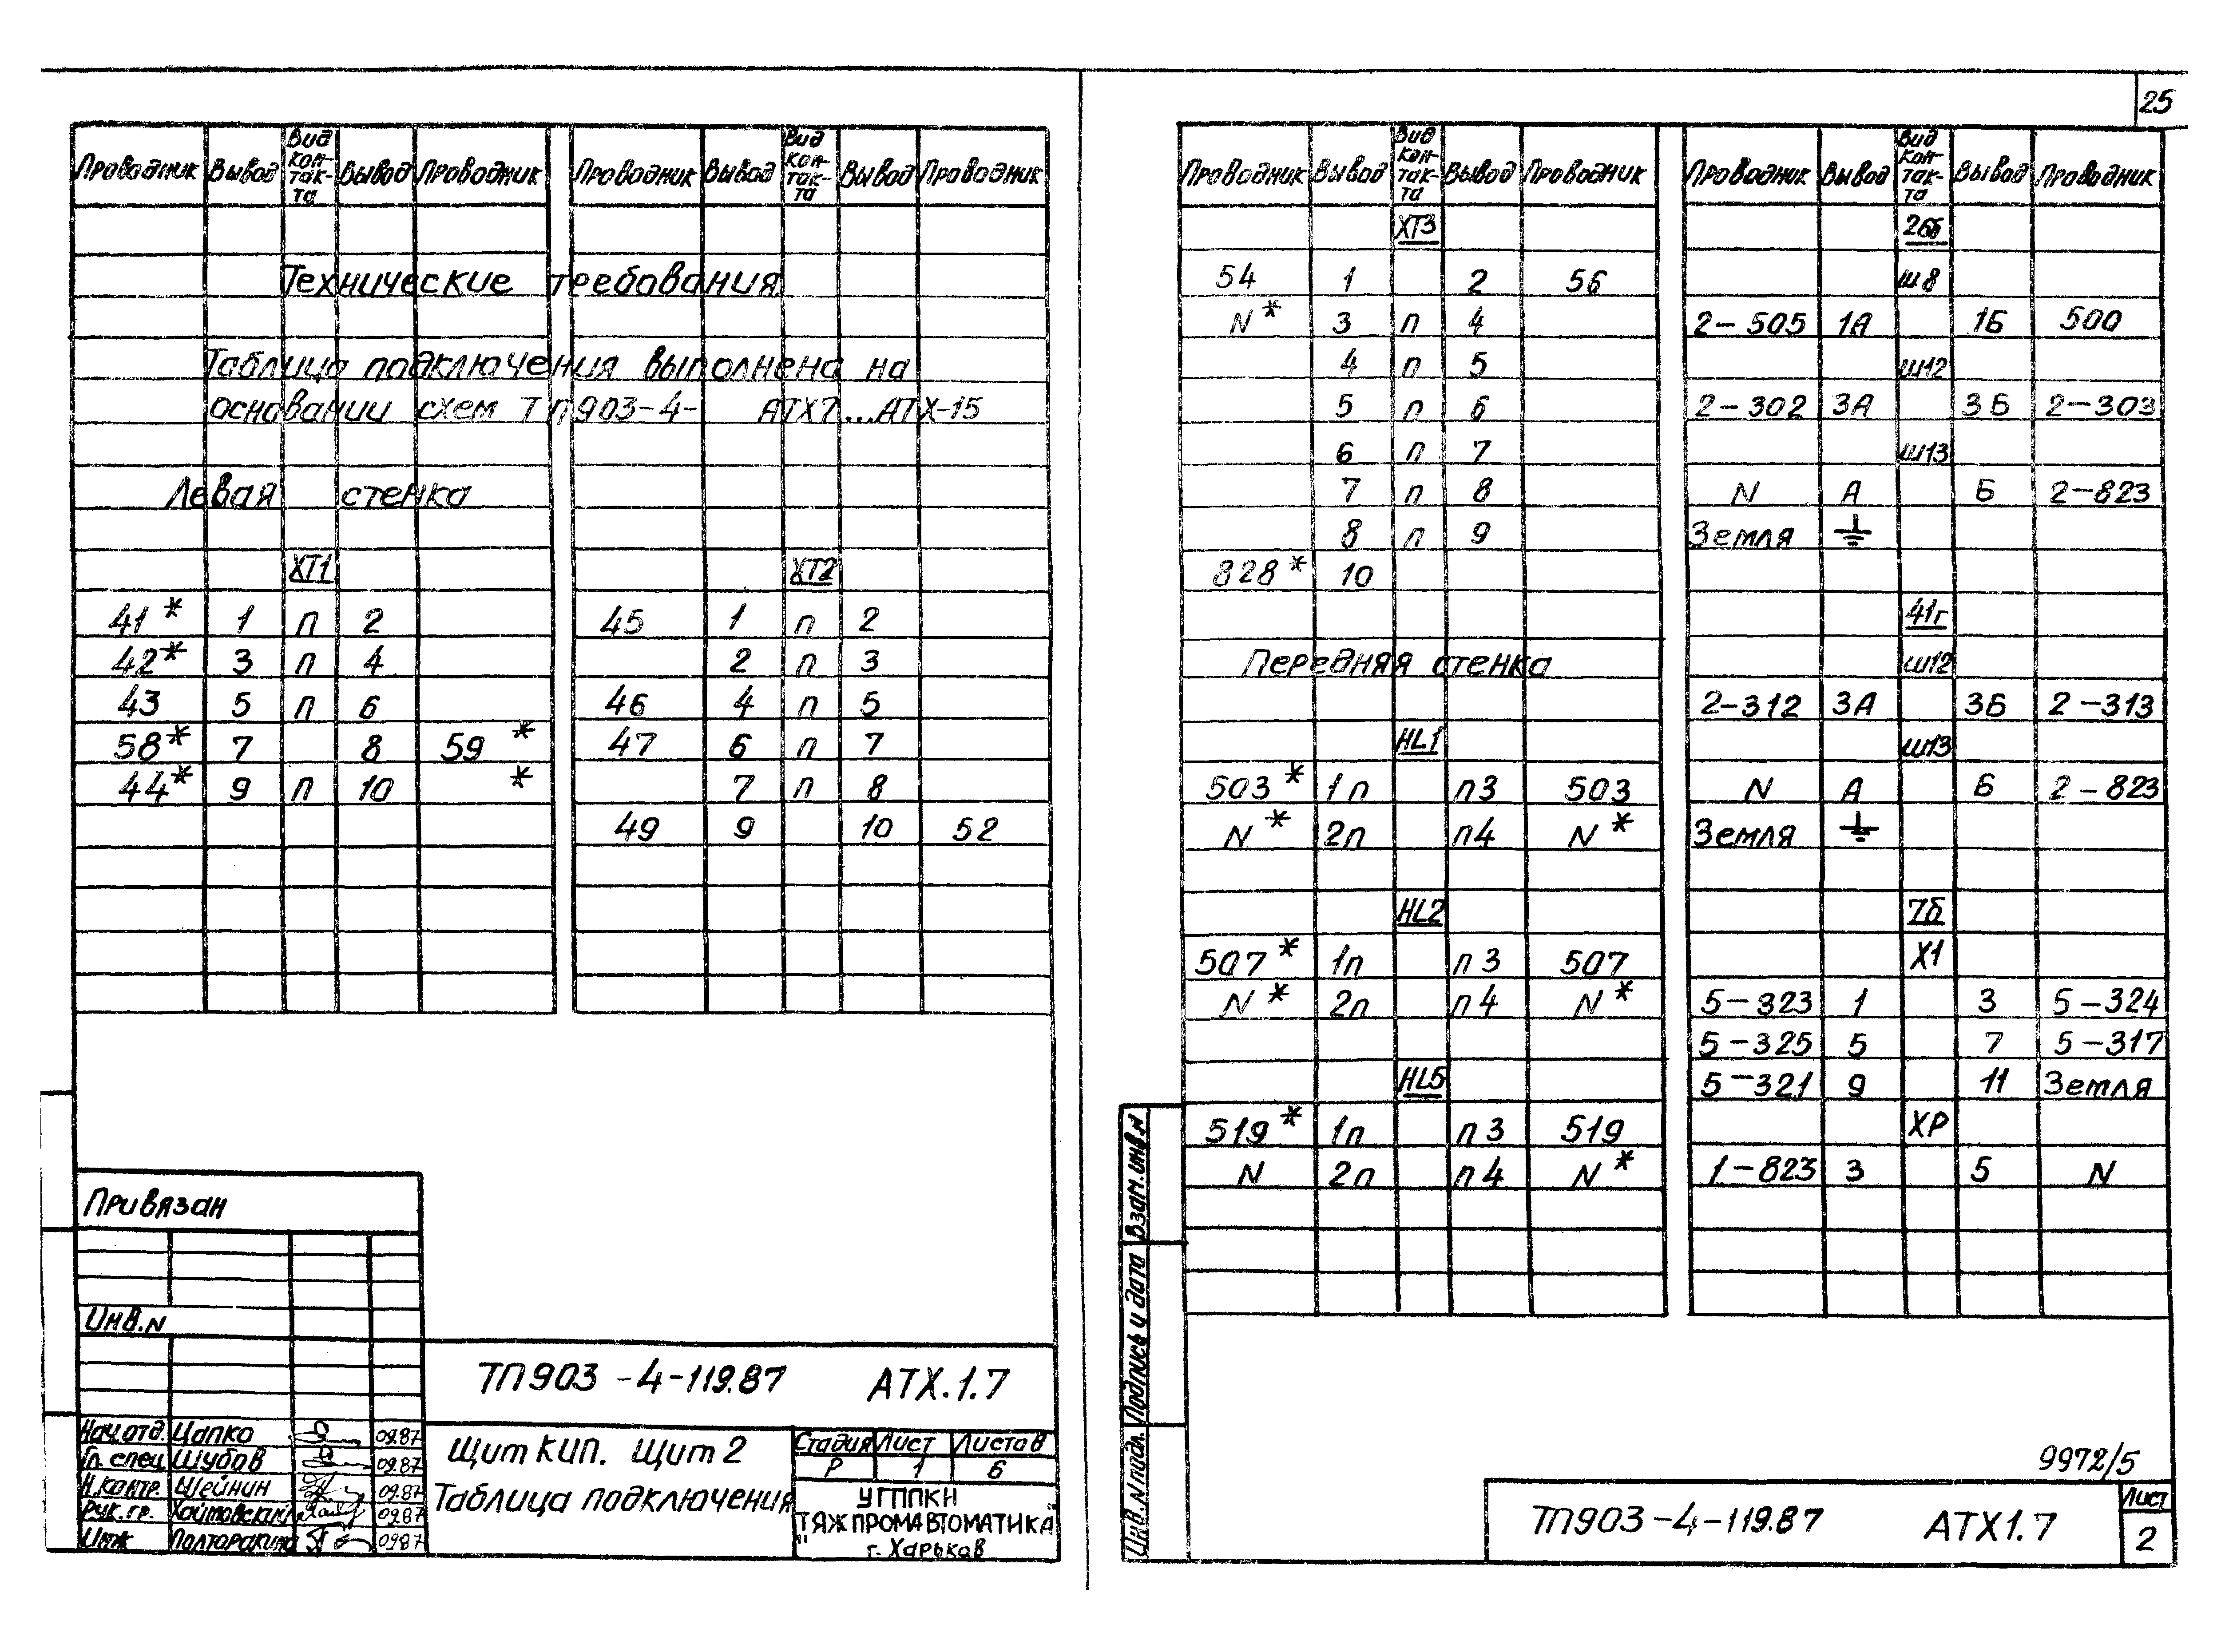 25
Проводник Вывод Вид кон-так-та Вывод Проводник Проводник Вывод Вид кон-так-та Вывод Проводник
Технические требования
Таблица подключения выполнена на
основании схем ТП903-4- АТХ7...АТХ-15
Левая стенка
ХТ1 ХТ2
41* 1 п 2 45 1 п 2
42* 3 п 4 2 п 3
43 5 п 6 46 4 п 5
58* 7 8 59* 47 6 п 7
44* 9 п 10 * 7 п 8
49 9 10 52
Привязан
Инв.N
ТП903-4-119.87 АТХ.1.7
Нач.отд. Цапко 09.87
Гл. спец Шубов 09.87
Н.контр. Шейнин 09.87
Рук.гр. 09.87
Инж 09.87
Щит КИП. Щит 2
Таблица подключения
Стадия Лист Листов
Р 1 6
УГППКИ
"ТЯЖПРОМАВТОМАТИКА"
г. Харьков
Проводник Вывод Вид кон-так-та Вывод Проводник
ХТ3
54 1 2 56
N* 3 п 4
4 п 5
5 п 6
6 п 7
7 п 8
8 п 9
828* 10
Передняя стенка
HL1
503* 1п п3 503
N* 2п п4 N*
HL2
507* 1п п3 507
N* 2п п4 N*
HL5
519* 1п п3 519
N 2п п4 N*
Проводник Вывод Вид кон-так-та Вывод Проводник
Ш8
2-505 1А 1Б 500
Ш12
2-302 3А 3Б 2-303
Ш13
N А Б 2-823
Земля ⏚
41г
Ш12
2-312 3А 3Б 2-313
Ш13
N А Б 2-823
Земля ⏚
7б
Х1
5-323 1 3 5-324
5-325 5 7 5-317
5-321 9 11 Земля
ХР
1-823 3 5 N
Взам.инв.N
Подпись и дата
Инв.N подл.
9972/5
ТП903-4-119.87 АТХ1.7
Лист
2